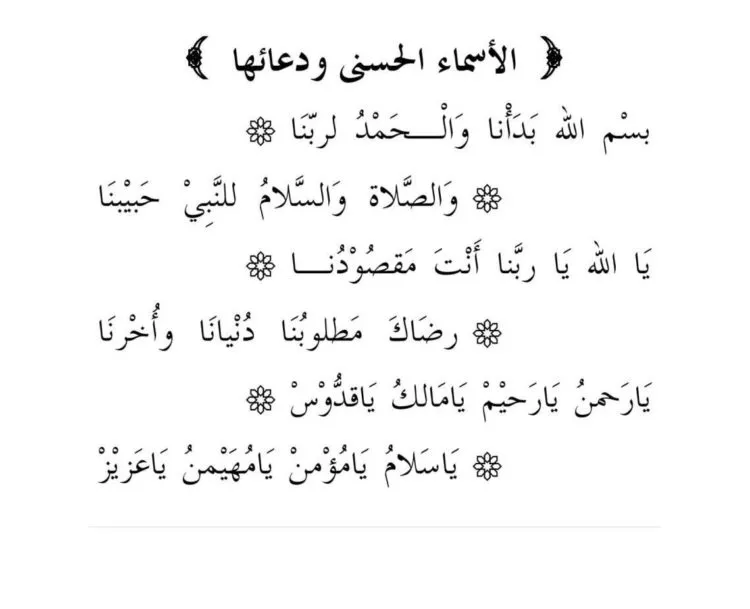 ﴿ الأسماء الحسنى ودعائها ﴾
بسْم الله بَدَأْنا وَالْـــحَمْدُ لربّنَا ۞
۞ وَالصَّلاة وَالسَّلامُ للنَّبِيْ حَبيْبنَا
يَا الله يَا ربَّنا أَنْتَ مَقصُوْدُنـــا ۞
۞ رضَاكَ مَطلوبُنَا دُنْيانَا وأُخْرنَا
يَارَحمنُ يَارَحيْمْ يَامَالكُ يَاقدُّوْسْ ۞
۞ يَاسَلامُ يَامُؤْمنْ يَامُهَيْمنُ يَاعَزيْزْ